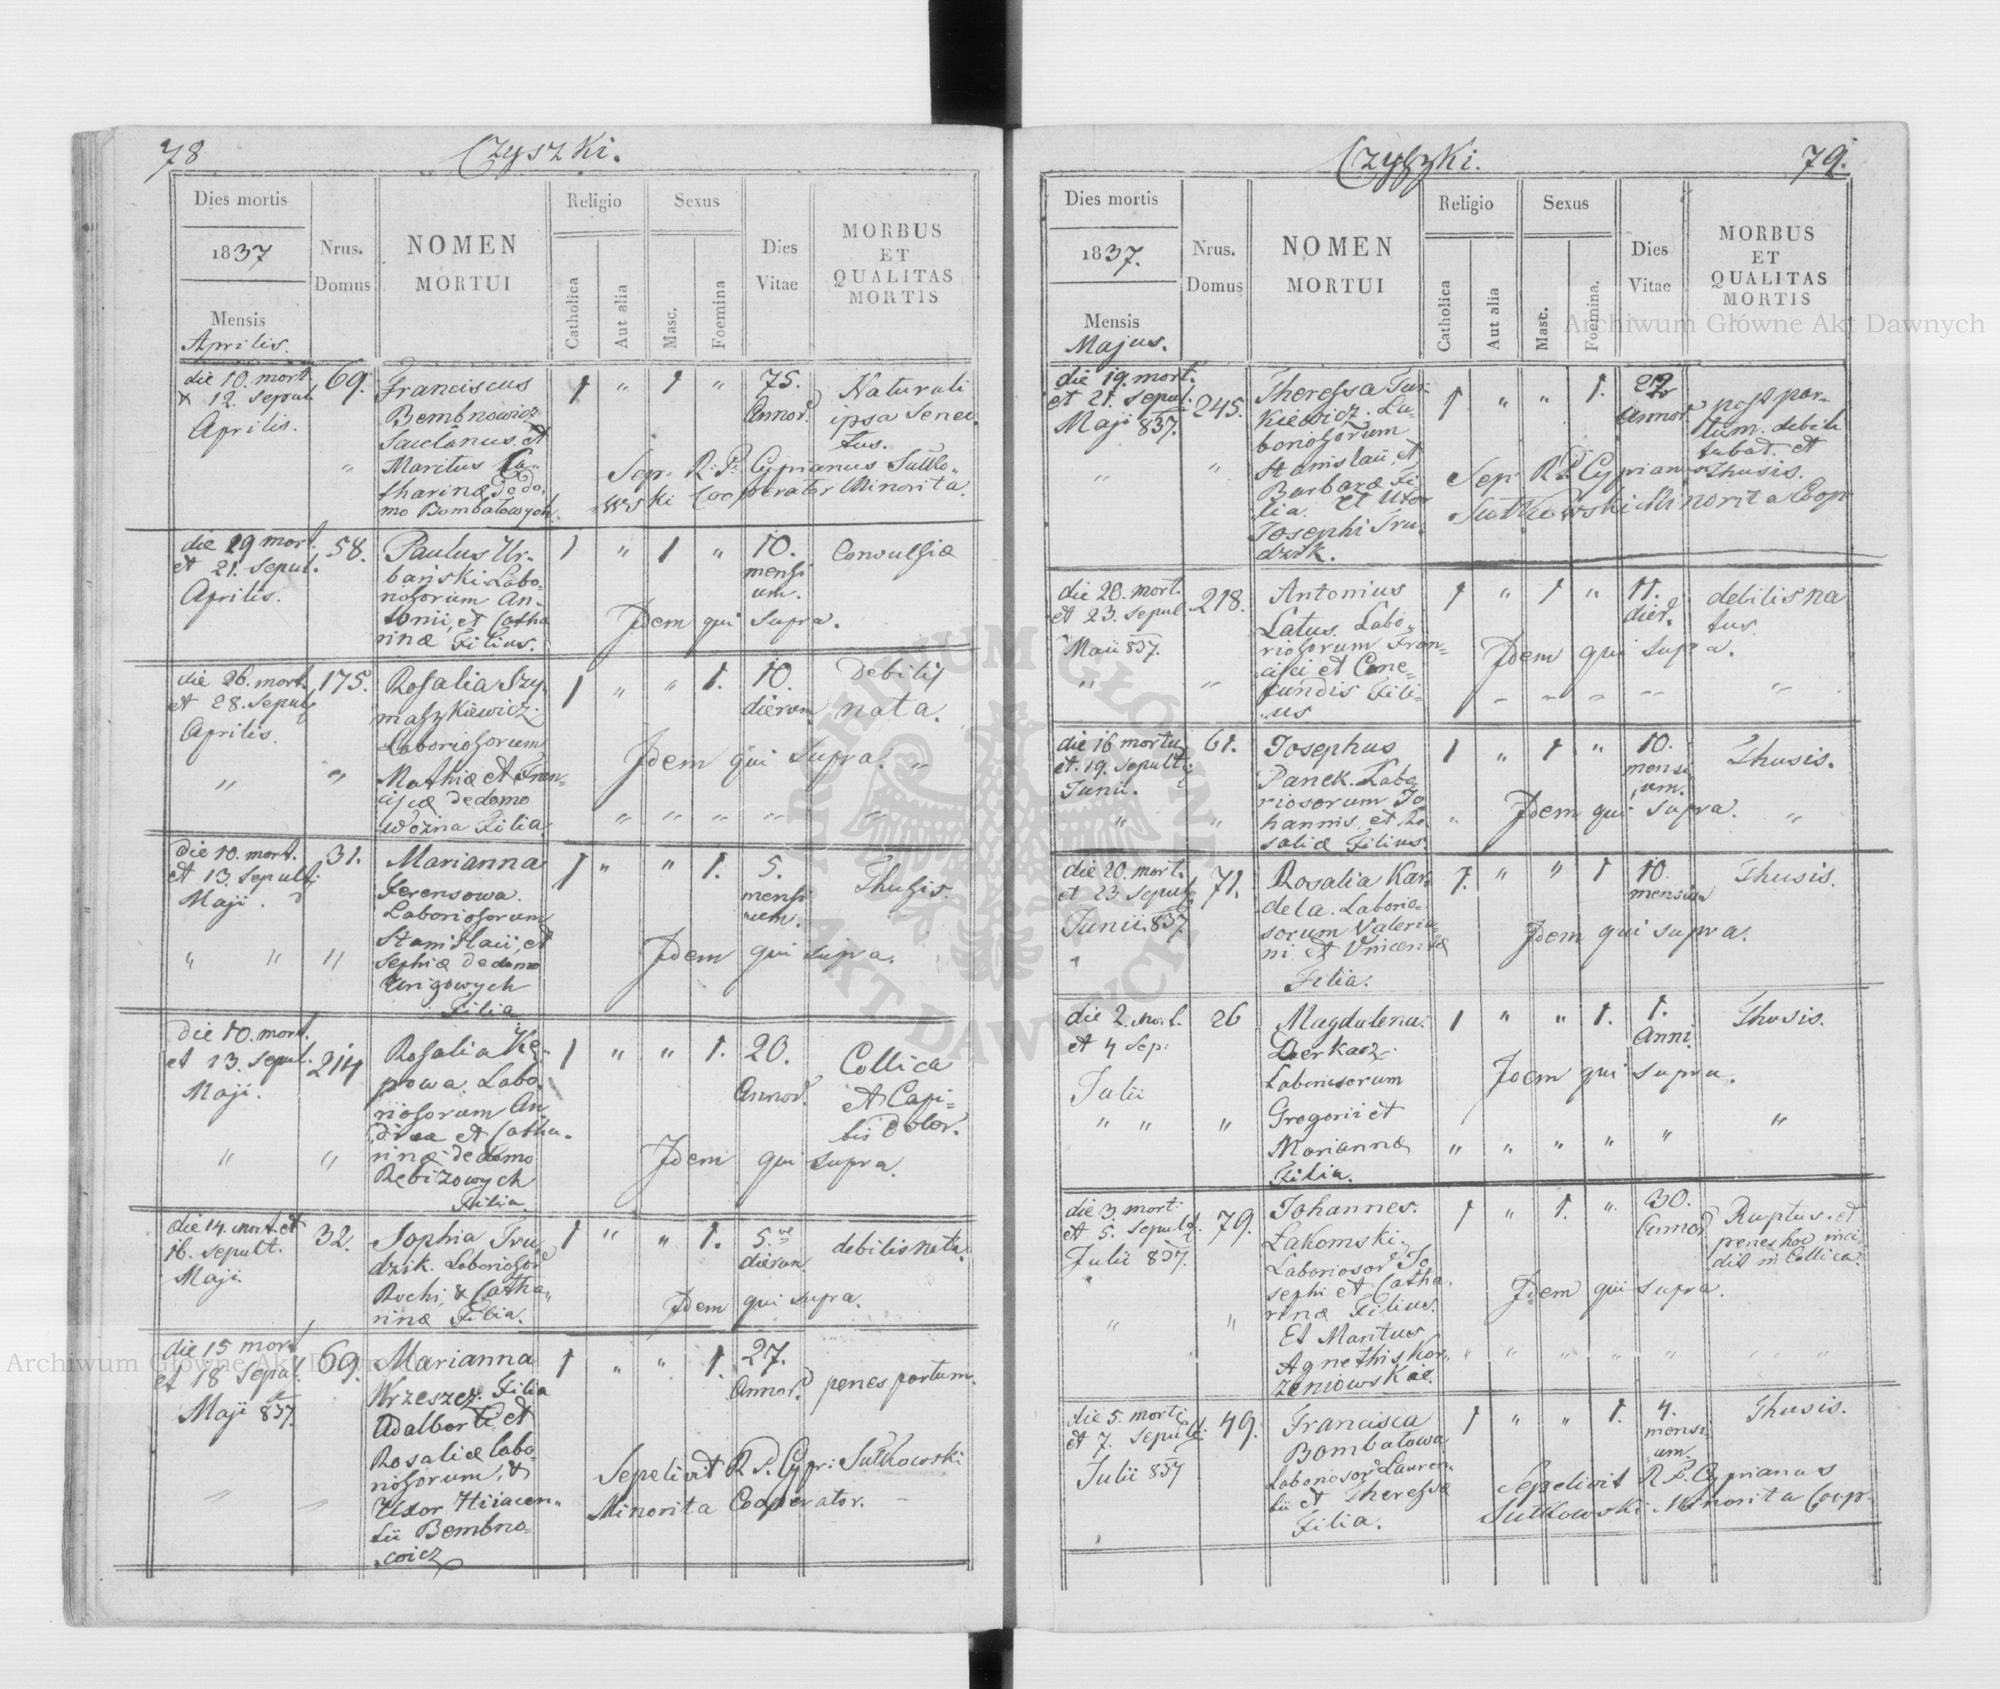 78
Czyszki.
Dies mortis
1837
Mensis
Aprilis.
Nrus.
Domus
NOMEN
MORTUI
Religio
Catholica
Aut alia
Sexus
Masc.
Foemina
Dies
Vitae
MORBUS
ET
QUALITAS
MORTIS
die 10. mort.
& 12. Sepul.
Aprilis.
69.
Franciscus
Bembnowicz
et
Maritus Ca-
tharinæ de do-
mo Bombatowych.
1 " 1 "
75.
Annor.
Naturali
ipsa Senec-
tus.
Sep. R: P: Cyprianus Sutko-
wski Cooperator Minorita.
die 19 mort.
et 21. Sepul.
Aprilis.
58.
Paulus Ur-
bański Labo-
riosorum An-
tonii, et Catha
rinæ Filius.
1 " 1 "
10.
mensi
um.
Convulsiæ
Idem qui supra.
die 26. mort.
et 28. Sepul.
Aprilis.
175.
Rosalia Szy-
maszkiewicz.
Laboriosorum
Mathiæ et Fran-
ciscæ de domo
Woźna Filia
1 " " 1.
10.
dierum
Debilis
nata.
Idem qui supra. "
die 10. mort.
et 13. Sepult.
Maji.
31.
Marianna
Ferensowa.
Laboriosorum
Stanislaii, et
Sophiæ de domo
Filia
1 " " 1.
5.
mensi
um.
Thusis.
Idem qui supra.
die 10. mort.
et 13. Sepul.
Maji.
214
Rosalia Kę-
powa. Labo-
riosorum An-
dreæ et Catha-
rinæ de domo
Rebizowych
Filia.
1 " " 1.
20.
Annor.
Collica
et Capi-
tis dolor.
Idem qui supra.
die 14. mort. et
16. sepult.
Maji.
32.
Sophia Tru
dzik. Laboriosor
Rochi, & Catha-
rinæ Filia.
1 " " 1.
5.
dierum
debilis nata.
Idem qui supra.
die 15 mort
et 18 Sepul.
Maji 837.
69.
Marianna
Wrzeszcz. Filia
Adalberti, et
Rosaliæ labo-
riosorum, &
Uxor Hiiacen-
tii Bembno-
wicz
1 " " 1.
27.
Annor.
penes partum.
Sepelivit R. P. Cypr: Sutkowski
Minorita Cooperator.
Czyszki.
79.
Dies mortis
1837.
Mensis
Majus.
Nrus.
Domus
NOMEN
MORTUI
Religio
Catholica
Aut alia
Sexus
Masc.
Foemina.
Dies
Vitae
MORBUS
ET
QUALITAS
MORTIS
die 19. mort.
et 21. Sepul.
Maji 837.
245.
Theressa Tur-
kiewicz. La-
boriosorum
Stanislaii, et
Barbaræ Fi-
lia. Et Uxor
Josephi Tru-
dzik.
1 " " 1.
Annor.
post par-
tum. debili
tabat. et
Thusis.
Sep: R P. Cyprianus
Sutkowski Minorita Coop
die 20. mort.
et 23. Sepul.
Maii 837.
218.
Antonius
Latus. Labo-
riosorum Fran-
cisci et Cune-
gundis Fili-
us
1 " 1 "
11.
dier.
debilis na
tus.
Idem qui supra.
die 16 mortu
et. 19. Sepult
Junii.
61.
Josephus
Panek. Labo-
riosorum Jo
hannis, et Ro-
saliæ Filius.
1 " 1 "
10.
mensi
um.
Thusis.
Idem qui supra.
die 20. mort.
et 23 Sepul.
Junii. 837.
71.
Rosalia Kar-
dela. Laborio-
sorum Valeria-
ni, et Vincentæ
Filia.
1. " " 1
10.
mensium
Thusis.
Idem qui supra.
die 2. mort.
et 4 Sep:
Julii
26
Magdalena.
Derkacz.
Laboriosorum
Gregorii et
Mariannæ
Filia.
1 " " 1.
1.
Anni.
Thusis.
Idem qui supra.
die 3. mort.
et 5. Sepult.
Julii 837.
79.
Johannes.
Łakomski.
Laboriosor Jo
sephi et Catha-
rinæ Filius.
Et Maritus
Agnethis Kor-
zeniowskiæ.
1 " 1. "
30.
Annor
Ruptus. et
penes hoc inci
dit in Collica.
Idem qui supra.
die 5. morti
et 7. Sepult.
Julii 837
49.
Francisca
Bombatowa
Laboriosor Lauren-
tii et Theressæ
Filia.
1 " " 1.
4.
mensi
um.
Thusis.
Sepelivit R. P. Cyprianus
Sutkowski Minorita Coop.
Archiwum Główne Akt Dawnych
Archiwum Główne Akt Dawnych
ARCHIWUM GŁÓWNE AKT DAWNYCH